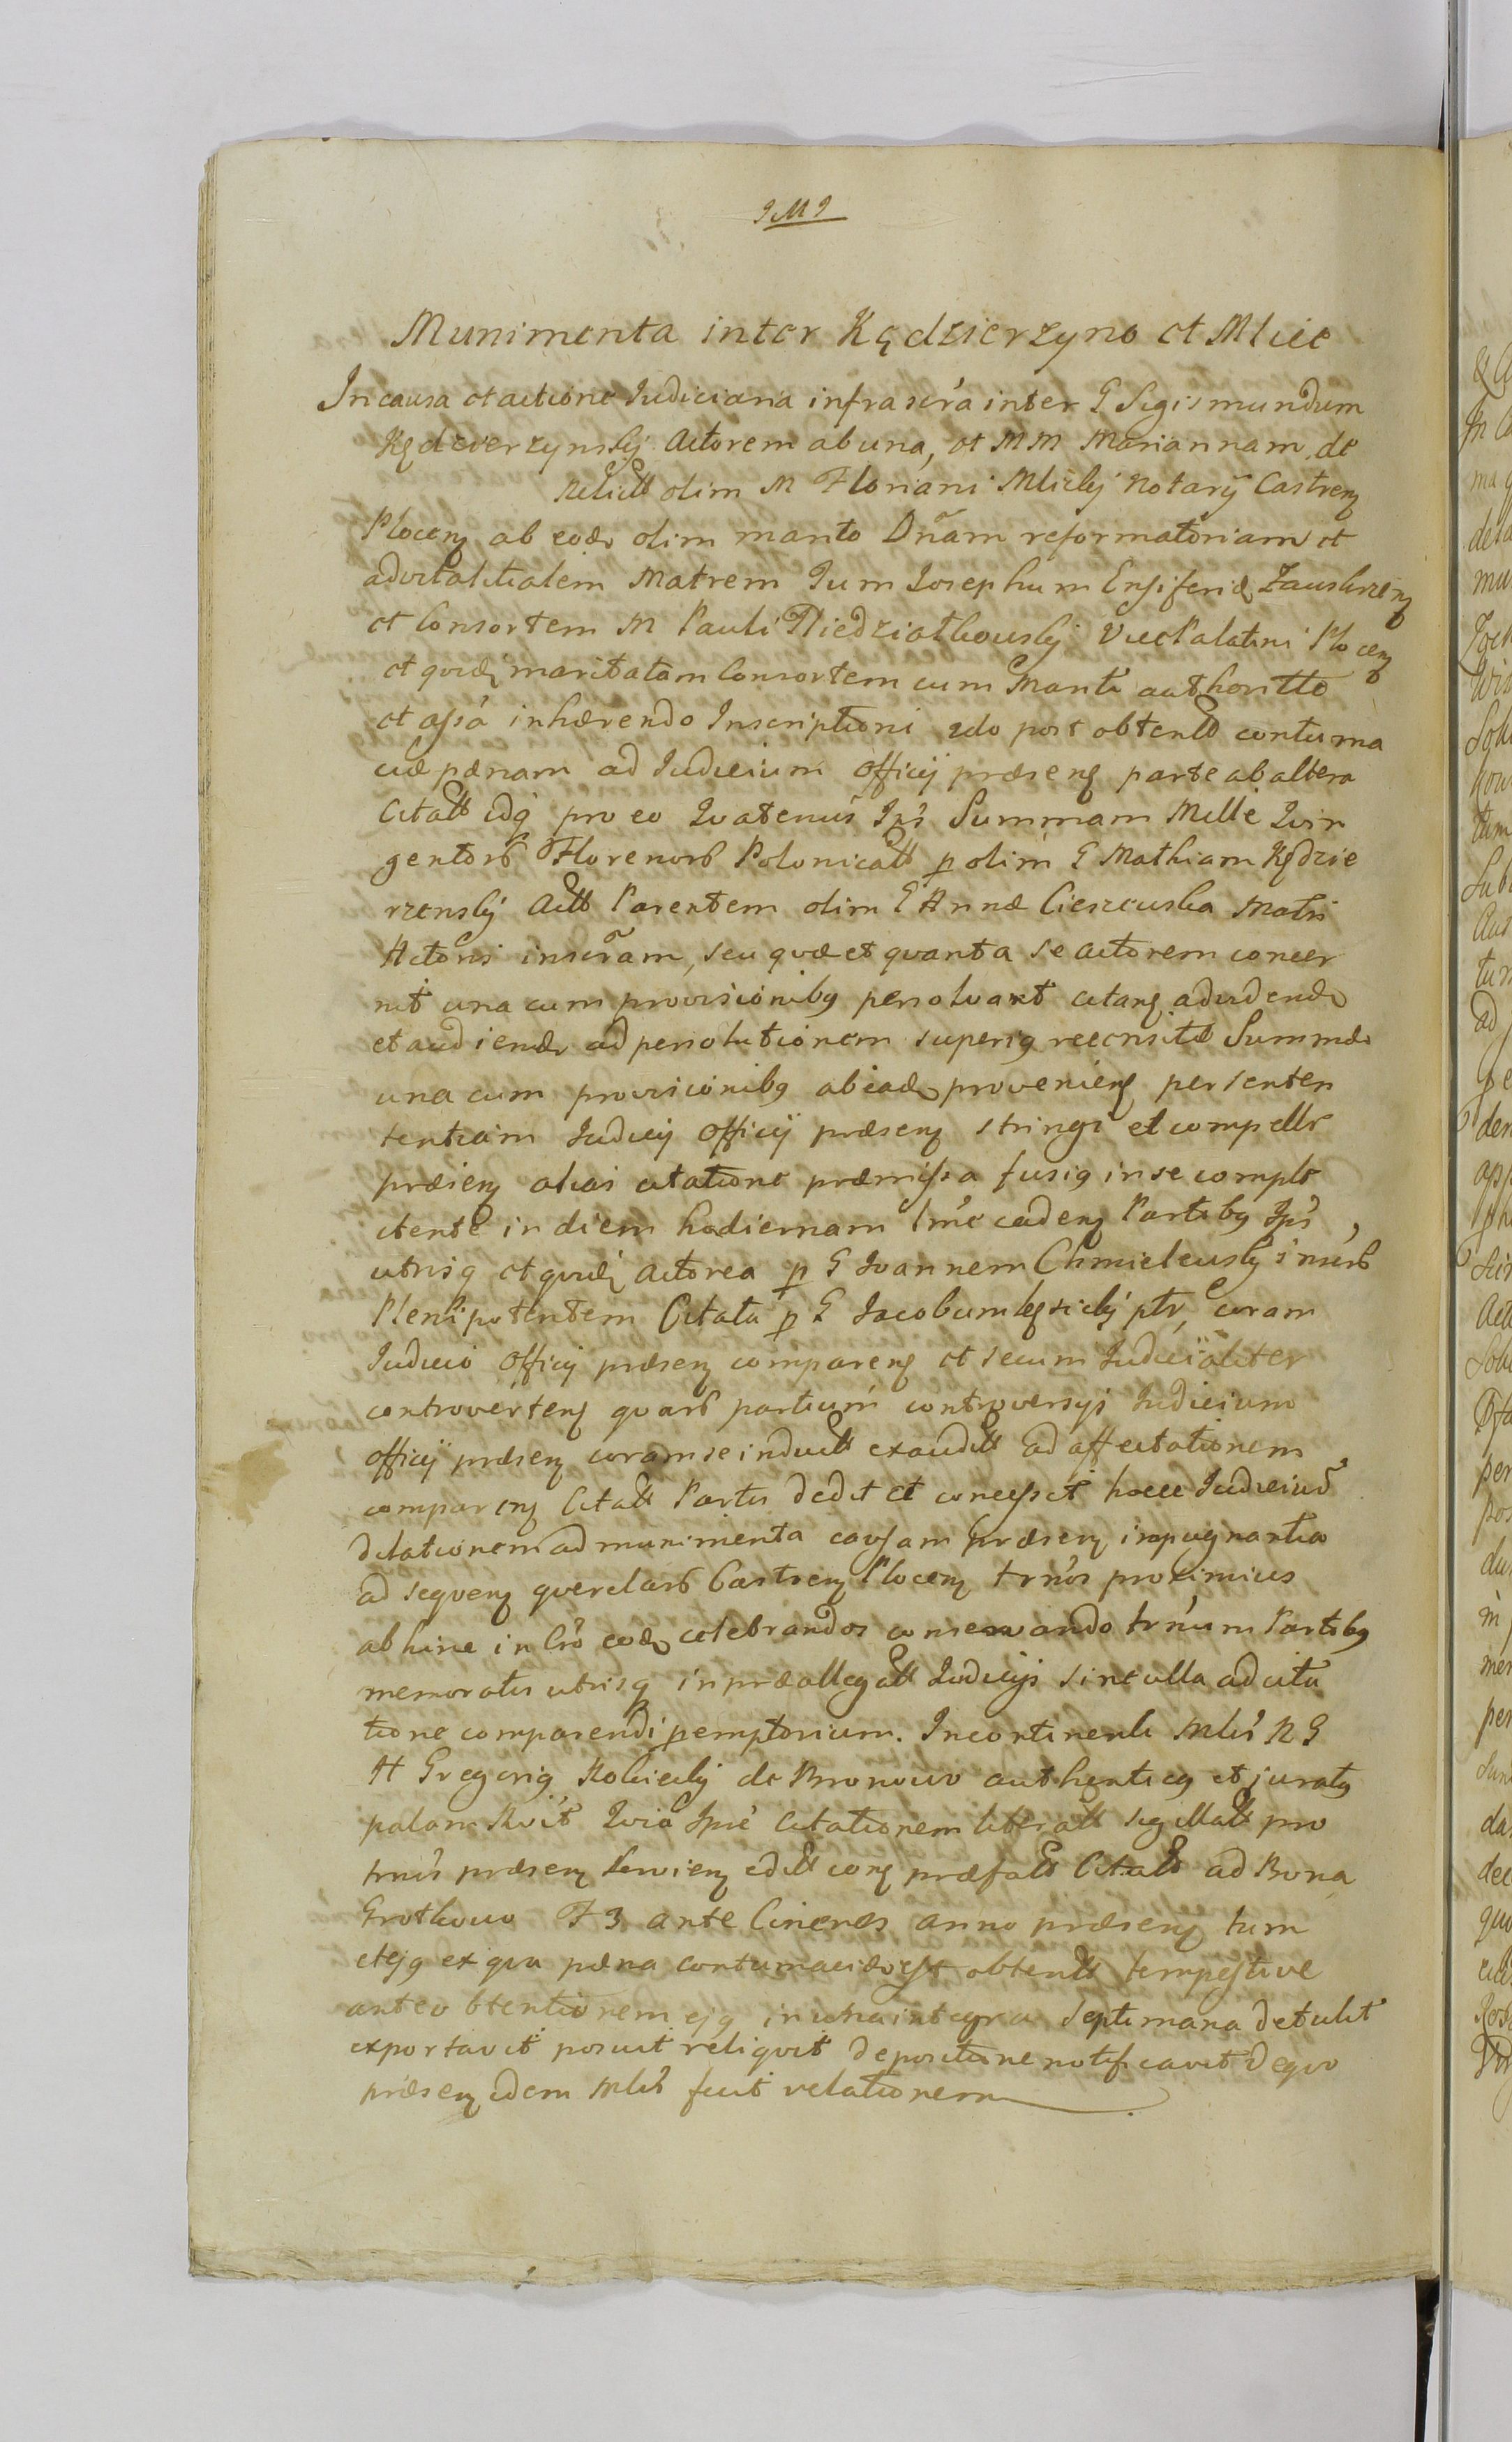 JMJ
Munimenta inter Kędzierzyno et Mlice
In causa et actione Iudiciaria infrascra inter G Sigismundum
Kędzierzynsky Actorem ab una, et MM Mariannam de
Relictt olim M Floriani Mlicky Notarÿ Castrenꝫ
Plocenꝫ ab eodꝫ olim marito Dnam reformatoriam et
advitalitialem Matrem Tum Iosephum Ensiferidꝫ Zauskrzenꝫ
et Consortem M Pauli Niedziałkowsky VicePalatini Plocenꝫ
et quidꝫ maritatam Consortem cum Mariti authoritte
et assa inhærendo Inscriptioni 2do post obtentt contuma
ciæ pænam ad Iudicium Officij præsenꝫ parte ab altera
Citatt idꝗ pro eo Quatenus Ips Summam Mille Quin
gentorꝫ Florenorꝫ Polonicatt p olim G Mathiam Kędzie
rzensky Actt Parentem olim G Annæ Cieszewska Matri
Actoris inscram, seu quæ et quanta se actorem concer
nit una cum provisionibꝫ persolvant citanꝫ ad videndꝫ
et audiendꝫ ad persolutionem superiꝫ recensitæ Summæ
una cum provisionibꝫ ab eadꝫ provenienꝫ per senten
tentiam Iudicij Officij præsenꝫ stringi et compelli
præsenꝫ alias citatione præmissa fusiꝫ in se comple
ctente in diem hodiernam lme cadenꝫ Partibꝫ Ips
utrisꝗ et quidꝫ actorea p G Ioannem Chmielewsky
Plenipotentem Citata p G Iacobum ptr, coram
Iudicio Officij præsenꝫ comparenꝫ et secum Iudicialiter
controvertenꝫ quarꝫ partium controversijs Iudicium
Officij præsenꝫ coram se inductt exauditt ad affectationem
comparenꝫ Citatt Partis dedit et concessit hocce Iudiciuꝫ
dilationem ad munimenta causam præsenꝫ impugnantia
ad sequenꝫ querelarꝫ Castrenꝫ Plocenꝫ trnos proximius
ab hinc in Cro eodꝫ celebrandos conservando trnum Partibꝫ
memoratis utrisꝗ in præallegatt Iudicijs sine ulla adcita
tione comparendi pemptorium. Incontinenti Mlis RG
H Gregoriꝫ Robiecky de Bronowo authenticꝫ et juratꝫ
palam Rvit Quia Ipse Citationem literatt sigillatt pro
trnis præsenꝫ servienꝫ editt conꝫ præfatt Citatt ad Bona
Grotkowo F 3 ante Cineres anno præsenꝫ tum
etejꝫ ex qua pæna contumaciæ est obtentt tempestive
ante obtentionem ejꝫ in una integra Septimana detulit
exportavit posuit reliquit depositione notificavit dequo
præsenꝫ idem Mlis fecit relationem